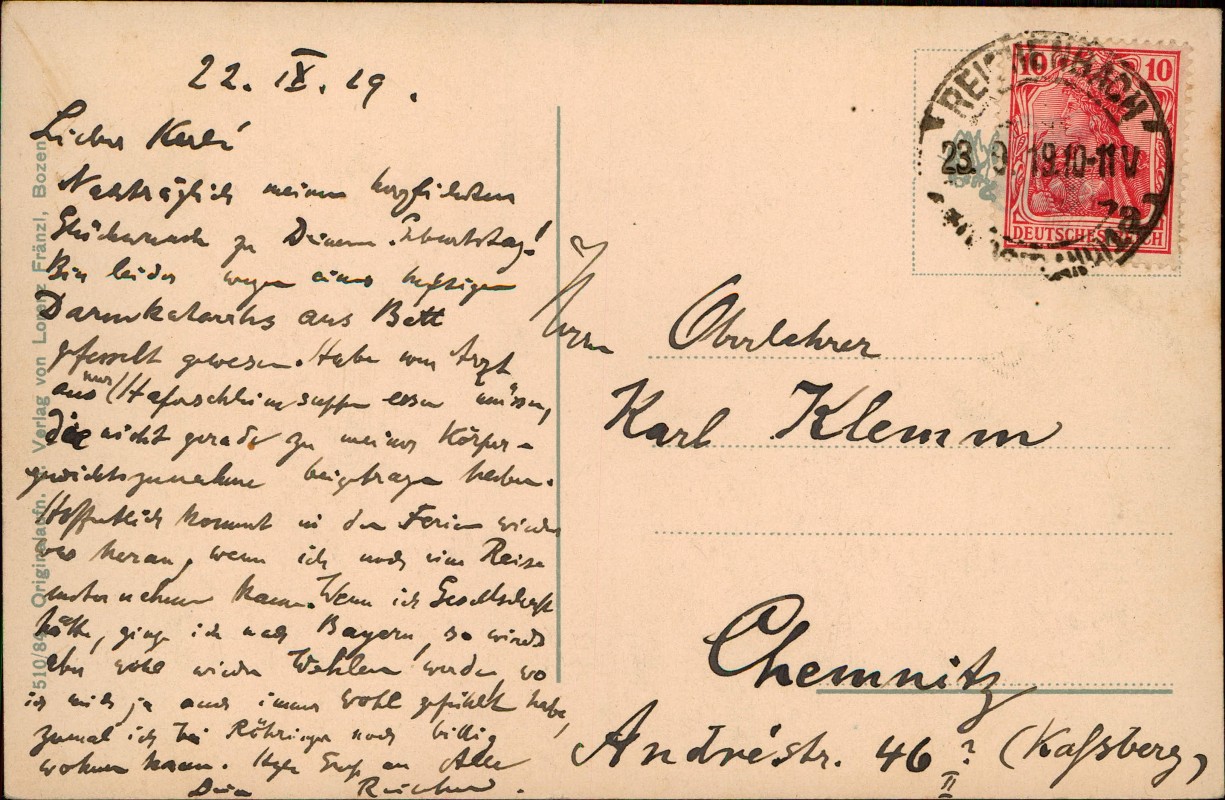 22. IX. 19.
Lieber Karl!
Nachträglich meinen herzlichsten
Glückwunsch zu Deinem Geburtstag!
Bin leider wegen eines heftigen
Darmkatarrhs ans Bett
gefesselt gewesen. Habe vom Arzt
aus nur Haferschleimsuppe essen müssen,
die nicht gerade zu meiner Körper-
gewichtszunahme beigetragen haben.
Hoffentlich kommt in den Ferien wieder
heran, wenn ich noch eine Reise
unternehmen kann. Wenn ich Gesellschaft
hätte, ginge ich nach Bayern, so wirds
aber wohl wieder Wehlen werden, wo
ich mich ja auch immer wohl gefühlt habe,
zumal ich bei Röhringer noch billig
wohnen kann. Gruß an Alle
Dein Reichard.
Herrn Oberlehrer
Karl Klemm
Chemnitz
Andréstr. 46 II ? (Kaßberg)
REICHENBACH
23. 9. 19. 10-11 V
10 10
DEUTSCHES REICH
510/84 Originalaufn. u. Verlag von Lorenz Fränzl, Bozen